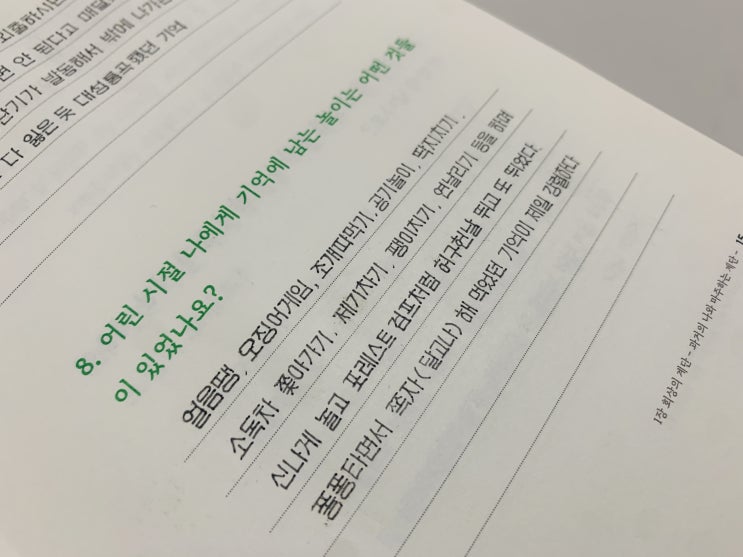 면 안 된다고
단기가 발동해서 밖에
다 잃은 듯 대성통곡했던 기억
8. 어린 시절 나에게 기억에 남는 놀이는 어떤 것들
이 있었나요?
얼음땡, 오징어게임, 조개따먹기, 공기놀이, 딱지치기,
소독차 쫓아가기, 제기차기, 팽이치기, 연날리기 등을 하며
신나게 놀고 포레스트 검프처럼 허구헌날 뛰고 또 뛰었다.
퐁퐁타면서 쪽자(달고나) 해 먹었던 기억이 제일 강렬하다
1장 회상의 계단 - 과거의 나와 마주하는 계단 - 15